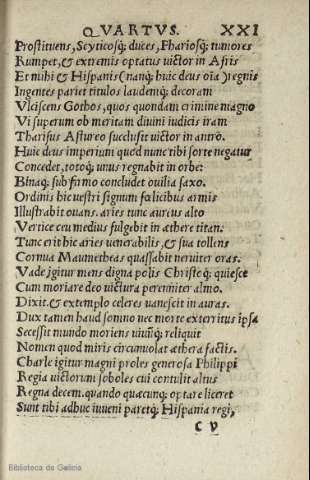 QVARTVS. XXI
Prostituens, Scyticosq; duces, Phariosq; tumores
Rumpet, & extremis optatus victor in Afris
Et mihi & Hispanis (nanq; huic deus oīa) regnis
Ingentes pariet titulos laudemq; decoram
Vlciscens Gothos, quos quondam crimine magno
Vi superum ob meritam diuini iudicis iram
Tharisus Astureo succlusit victor in antro.
Huic deus imperium quod nunc tibi sorte negatur
Concedet, totoq; unus regnabit in orbe:
Binaq; sub firmo concludet ouilia saxo.
Ordinis hic vestri signum fœlicibus armis
Illustrabit ouans. aries tunc aureus alto
Vertice ceu medius fulgebit in æthere titan.
Tunc erit hic aries venerabilis, & sua tollens
Cornua Maumetheas quassabit neruiter oras.
Vade igitur mens digna polis Christoq; quiesce
Cum moriare deo victura perenniter almo.
Dixit. & extemplo celeres vanescit in auras.
Dux tamen haud somno nec morte exterritus ipsa
Secessit mundo moriens viuūq; reliquit
Nomen quod miris circunuolat æthera factis.
Charle igitur magni proles generosa Philippi
Regia victorum soboles cui contulit altus
Regna decem. quando quæcunq; optare liceret
Sunt tibi adhuc iuueni paretq; Hispania regi,
C v
Biblioteca de Galicia